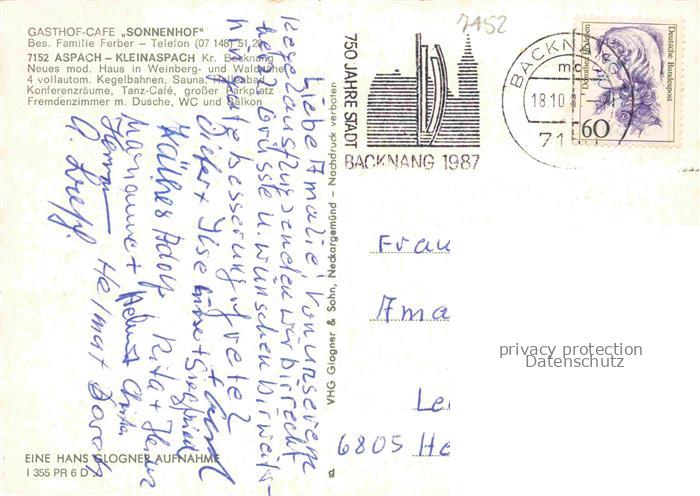 GASTHOF-CAFE „SONNENHOF"
Bes. Familie Ferber – Telefon (07 148) 51 26
7152 ASPACH – KLEINASPACH Kr. Backnang
Neues mod. Haus in Weinberg- und Waldnähe
4 vollautom. Kegelbahnen, Sauna, Hallenbad
Konferenzräume, Tanz-Café, großer Parkplatz
Fremdenzimmer m. Dusche, WC und Balkon
7452
750 JAHRE STADT
BACKNANG 1987
BACKNANG
18.10
71
Deutsche Bundespost
60
Liebe Amalie! Von unserem
Kegelausflug senden wir Dir recht
herzl. Grüsse u. wünschen Dir weiter-
hin gute Besserung
Dieter + Ilse
Käthe + Adolf Rita + Heinz
Marianne + Helmut
Helmat
VHG Glogner & Sohn, Neckargemünd – Nachdruck verboten
Frau
Ama
Le
6805 He
privacy protection
Datenschutz
EINE HANS GLOGNER AUFNAHME
I 355 PR 6 D
g